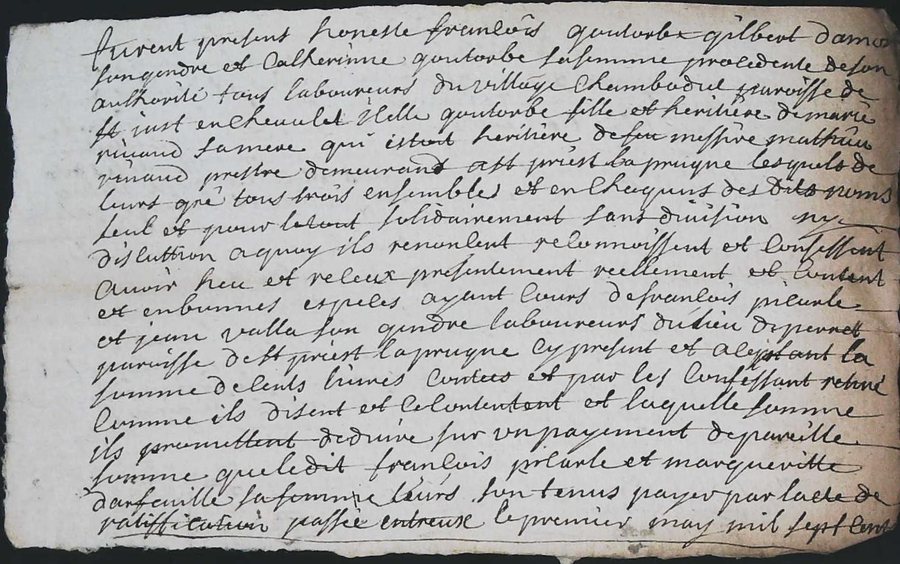 furent present honeste francois goutorbe gilbert damon
son gendre et Catherinne goutorbe sa femme procedente de son
authorité tous laboureurs du village Chambodut paroisse de
st just en chevalet Icelle goutorbe fille et heritiere de marie
rinaud sa mere qui estoit heritiere de feu messire mathieu
rinaud prestre demeurand a st priest laprugne lesquels de
leurs gré tous trois ensembles et en chaquuns des dits noms
seul et pour le tout solidairement sans division ny
discution a quoy ils renoncent reconnoissent et confessent
avoir heu et receux presentement reellement et content
et en bonnes especes ayant cours de francois picarle
et jean valla son gendre laboureurs du lieu de perret
paroisse de st priest laprugne cy present et aceptant la
somme de cents livres contees et par les confessant retiré
comme ils disent et ce contentent et laquelle somme
ils promettent deduire sur un payement de pareille
somme que ledit francois picarle et margueritte
darfeuille sa femme leurs son tenus payer par lacte de
ratiffication passée entreux le premier may mil sept cent